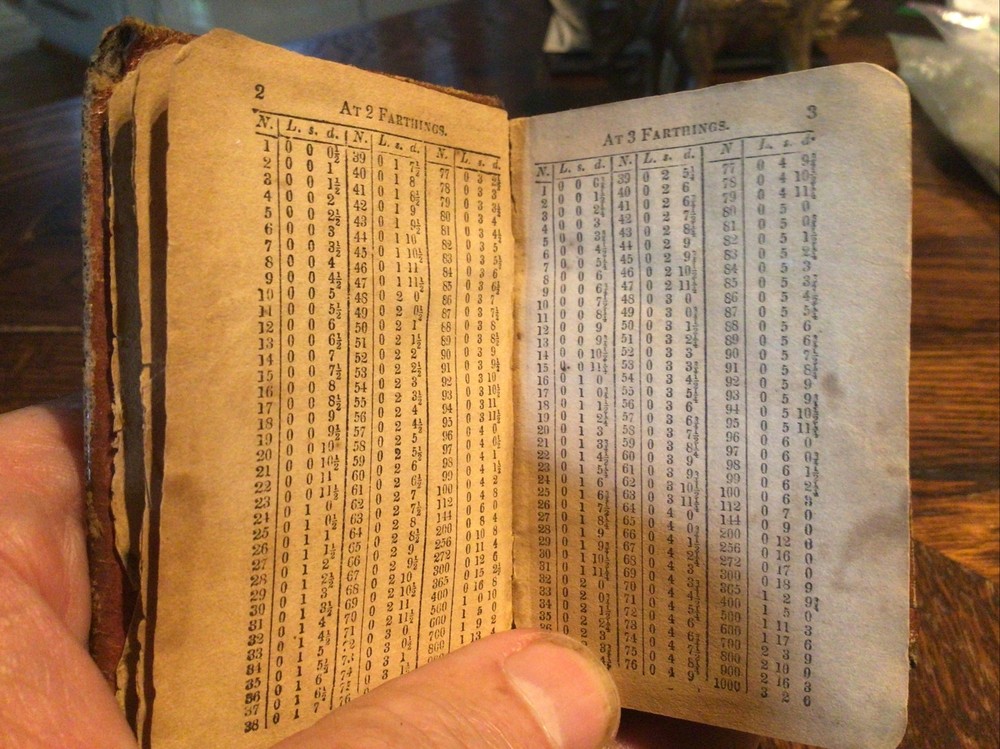 2
AT 2 FARTHINGS.
N. L. s. d. N. L. s. d. N. L. s. d.
1 0 0 0½ 39 0 1 7½ 77 0 3 2½
2 0 0 1 40 0 1 8 78 0 3 3
3 0 0 1½ 41 0 1 8½ 79 0 3 3½
4 0 0 2 42 0 1 9 80 0 3 4
5 0 0 2½ 43 0 1 9½ 81 0 3 4½
6 0 0 3 44 0 1 10 82 0 3 5
7 0 0 3½ 45 0 1 10½ 83 0 3 5½
8 0 0 4 46 0 1 11 84 0 3 6
9 0 0 4½ 47 0 1 11½ 85 0 3 6½
10 0 0 5 48 0 2 0 86 0 3 7
11 0 0 5½ 49 0 2 0½ 87 0 3 7½
12 0 0 6 50 0 2 1 88 0 3 8
13 0 0 6½ 51 0 2 1½ 89 0 3 8½
14 0 0 7 52 0 2 2 90 0 3 9
15 0 0 7½ 53 0 2 2½ 91 0 3 9½
16 0 0 8 54 0 2 3 92 0 3 10
17 0 0 8½ 55 0 2 3½ 93 0 3 10½
18 0 0 9 56 0 2 4 94 0 3 11
19 0 0 9½ 57 0 2 4½ 95 0 3 11½
20 0 0 10 58 0 2 5 96 0 4 0
21 0 0 10½ 59 0 2 5½ 97 0 4 0½
22 0 0 11 60 0 2 6 98 0 4 1
23 0 0 11½ 61 0 2 6½ 99 0 4 1½
24 0 1 0 62 0 2 7 100 0 4 2
25 0 1 0½ 63 0 2 7½ 112 0 4 8
26 0 1 1 64 0 2 8 144 0 6 0
27 0 1 1½ 65 0 2 8½ 200 0 8 4
28 0 1 2 66 0 2 9 256 0 10 8
29 0 1 2½ 67 0 2 9½ 272 0 11 4
30 0 1 3 68 0 2 10 300 0 12 6
31 0 1 3½ 69 0 2 10½ 365 0 15 2½
32 0 1 4 70 0 2 11 400 0 16 8
33 0 1 4½ 71 0 2 11½ 500 1 0 10
34 0 1 5 72 0 3 0 600 1 5 0
35 0 1 5½ 73 0 3 0½ 700 1 9
36 0 1 6 74 0 3 1 800 1 13
37 0 1 6½ 75
38 0 1 7 76
3
AT 3 FARTHINGS.
N. L. s. d. N. L. s. d. N L. s. d.
1 0 0 0¾ 39 0 2 5¼ 77 0 4 9¾
2 0 0 1½ 40 0 2 6 78 0 4 10½
3 0 0 2¼ 41 0 2 6¾ 79 0 4 11¼
4 0 0 3 42 0 2 7½ 80 0 5 0
5 0 0 3¾ 43 0 2 8¼ 81 0 5 0¾
6 0 0 4½ 44 0 2 9 82 0 5 1½
7 0 0 5¼ 45 0 2 9¾ 83 0 5 2¼
8 0 0 6 46 0 2 10½ 84 0 5 3
9 0 0 6¾ 47 0 2 11¼ 85 0 5 3¾
10 0 0 7½ 48 0 3 0 86 0 5 4½
11 0 0 8¼ 49 0 3 0¾ 87 0 5 5¼
12 0 0 9 50 0 3 1½ 88 0 5 6
13 0 0 9¾ 51 0 3 2¼ 89 0 5 6¾
14 0 0 10½ 52 0 3 3 90 0 5 7½
15 0 0 11¼ 53 0 3 3¾ 91 0 5 8¼
16 0 1 0 54 0 3 4½ 92 0 5 9
17 0 1 0¾ 55 0 3 5¼ 93 0 5 9¾
18 0 1 1½ 56 0 3 6 94 0 5 10½
19 0 1 2¼ 57 0 3 6¾ 95 0 5 11¼
20 0 1 3 58 0 3 7½ 96 0 6 0
21 0 1 3¾ 59 0 3 8¼ 97 0 6 0¾
22 0 1 4½ 60 0 3 9 98 0 6 1½
23 0 1 5¼ 61 0 3 9¾ 99 0 6 2¼
24 0 1 6 62 0 3 10½ 100 0 6 3
25 0 1 6¾ 63 0 3 11¼ 112 0 7 0
26 0 1 7½ 64 0 4 0 144 0 9 0
27 0 1 8¼ 65 0 4 0¾ 200 0 12 6
28 0 1 9 66 0 4 1½ 256 0 16 0
29 0 1 9¾ 67 0 4 2¼ 272 0 17 0
30 0 1 10½ 68 0 4 3 300 0 18 9
31 0 1 11¼ 69 0 4 3¾ 365 1 2 9¾
32 0 2 0 70 0 4 4½ 400 1 5 0
33 0 2 0¾ 71 0 4 5¼ 500 1 11 3
34 0 2 1½ 72 0 4 6 600 1 17 6
35 0 2 2¼ 73 0 4 6¾ 700 2 3 9
36 0 2 3 74 0 4 7½ 800 2 10 0
75 0 4 8¼ 900 2 16 3
76 0 4 9 1000 3 2 6